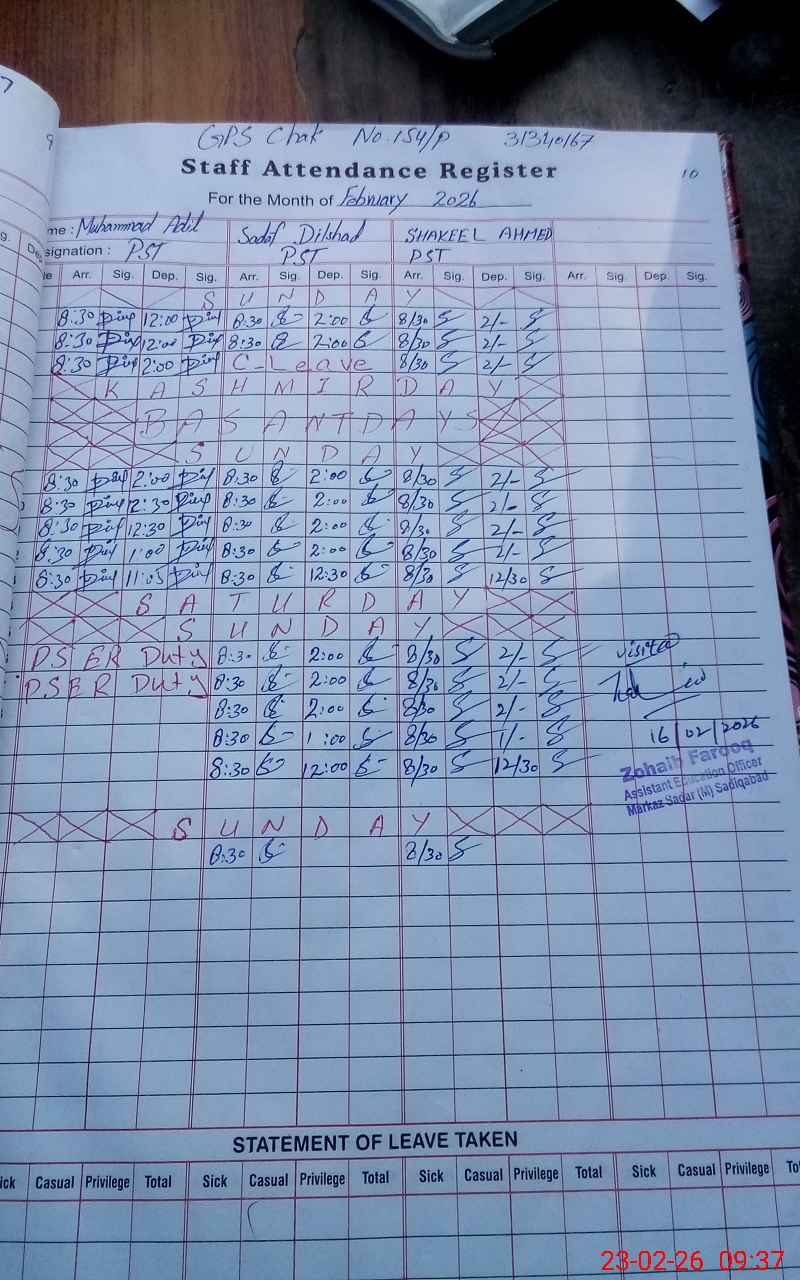 GPS Chak No.154/P 31340167
Staff Attendance Register
10
For the Month of February 2026
me : Muhammad Adil Sadaf Dilshad SHAKEEL AHMED
signation : PST PST PST
Arr. Sig. Dep. Sig. Arr. Sig. Dep. Sig. Arr. Sig. Dep. Sig. Arr. Sig. Dep. Sig.
S U N D A Y
8:30 12:00 8:30 2:00 8/30 2/-
8:30 12:00 8:30 2:00 8/30 2/-
8:30 2:00 C-Leave 8/30 2/-
K A S H M I R D A Y
B A S A N T D A Y S
S U N D A Y
8:30 2:00 8:30 2:00 8/30 2/-
8:30 12:30 8:30 2:00 8/30 2/-
8:30 12:30 8:30 2:00 8/30 2/-
8:30 1:00 8:30 2:00 8/30 2/-
8:30 11:05 8:30 12:30 8/30 12/30
S A T U R D A Y
S U N D A Y
PSER Duty 8:30 2:00 8/30 2/- visited
PSER Duty 8:30 2:00 8/30 2/-
8:30 2:00 8/30 2/-
8:30 1:00 8/30 1/- 16/02/2026
8:30 12:00 8/30 12/30
Zohaib Farooq
Assistant Education Officer
Markaz Sadar (M) Sadiqabad
S U N D A Y
8:30 8/30
STATEMENT OF LEAVE TAKEN
ick Casual Privilege Total Sick Casual Privilege Total Sick Casual Privilege Total Sick Casual Privilege To
23-02-26 09:37